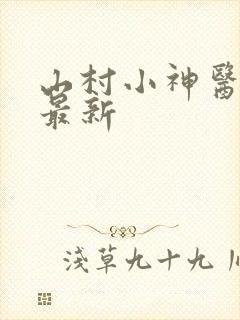 山村小神醫
最新
淺草九十九